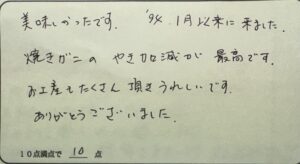 美味しかったです。 '94.1月以来に来ました。
焼きガニの やき加減が 最高です。
お土産もたくさん 頂きうれしいです。
ありがとうございました。
10点満点で 10 点